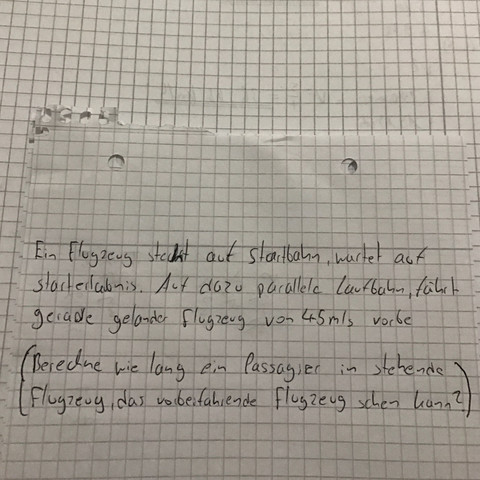 Ein Flugzeug steht auf Startbahn, wartet auf
starterlabnis. Auf dazu parallele Laufbahn, fährt
gerade gelander Flugzeug von 45m/s vorbe
(Berechne wie lang ein Passagier in stehende
Flugzeug, das vorbeifahrende Flugzeug sehen kann?)